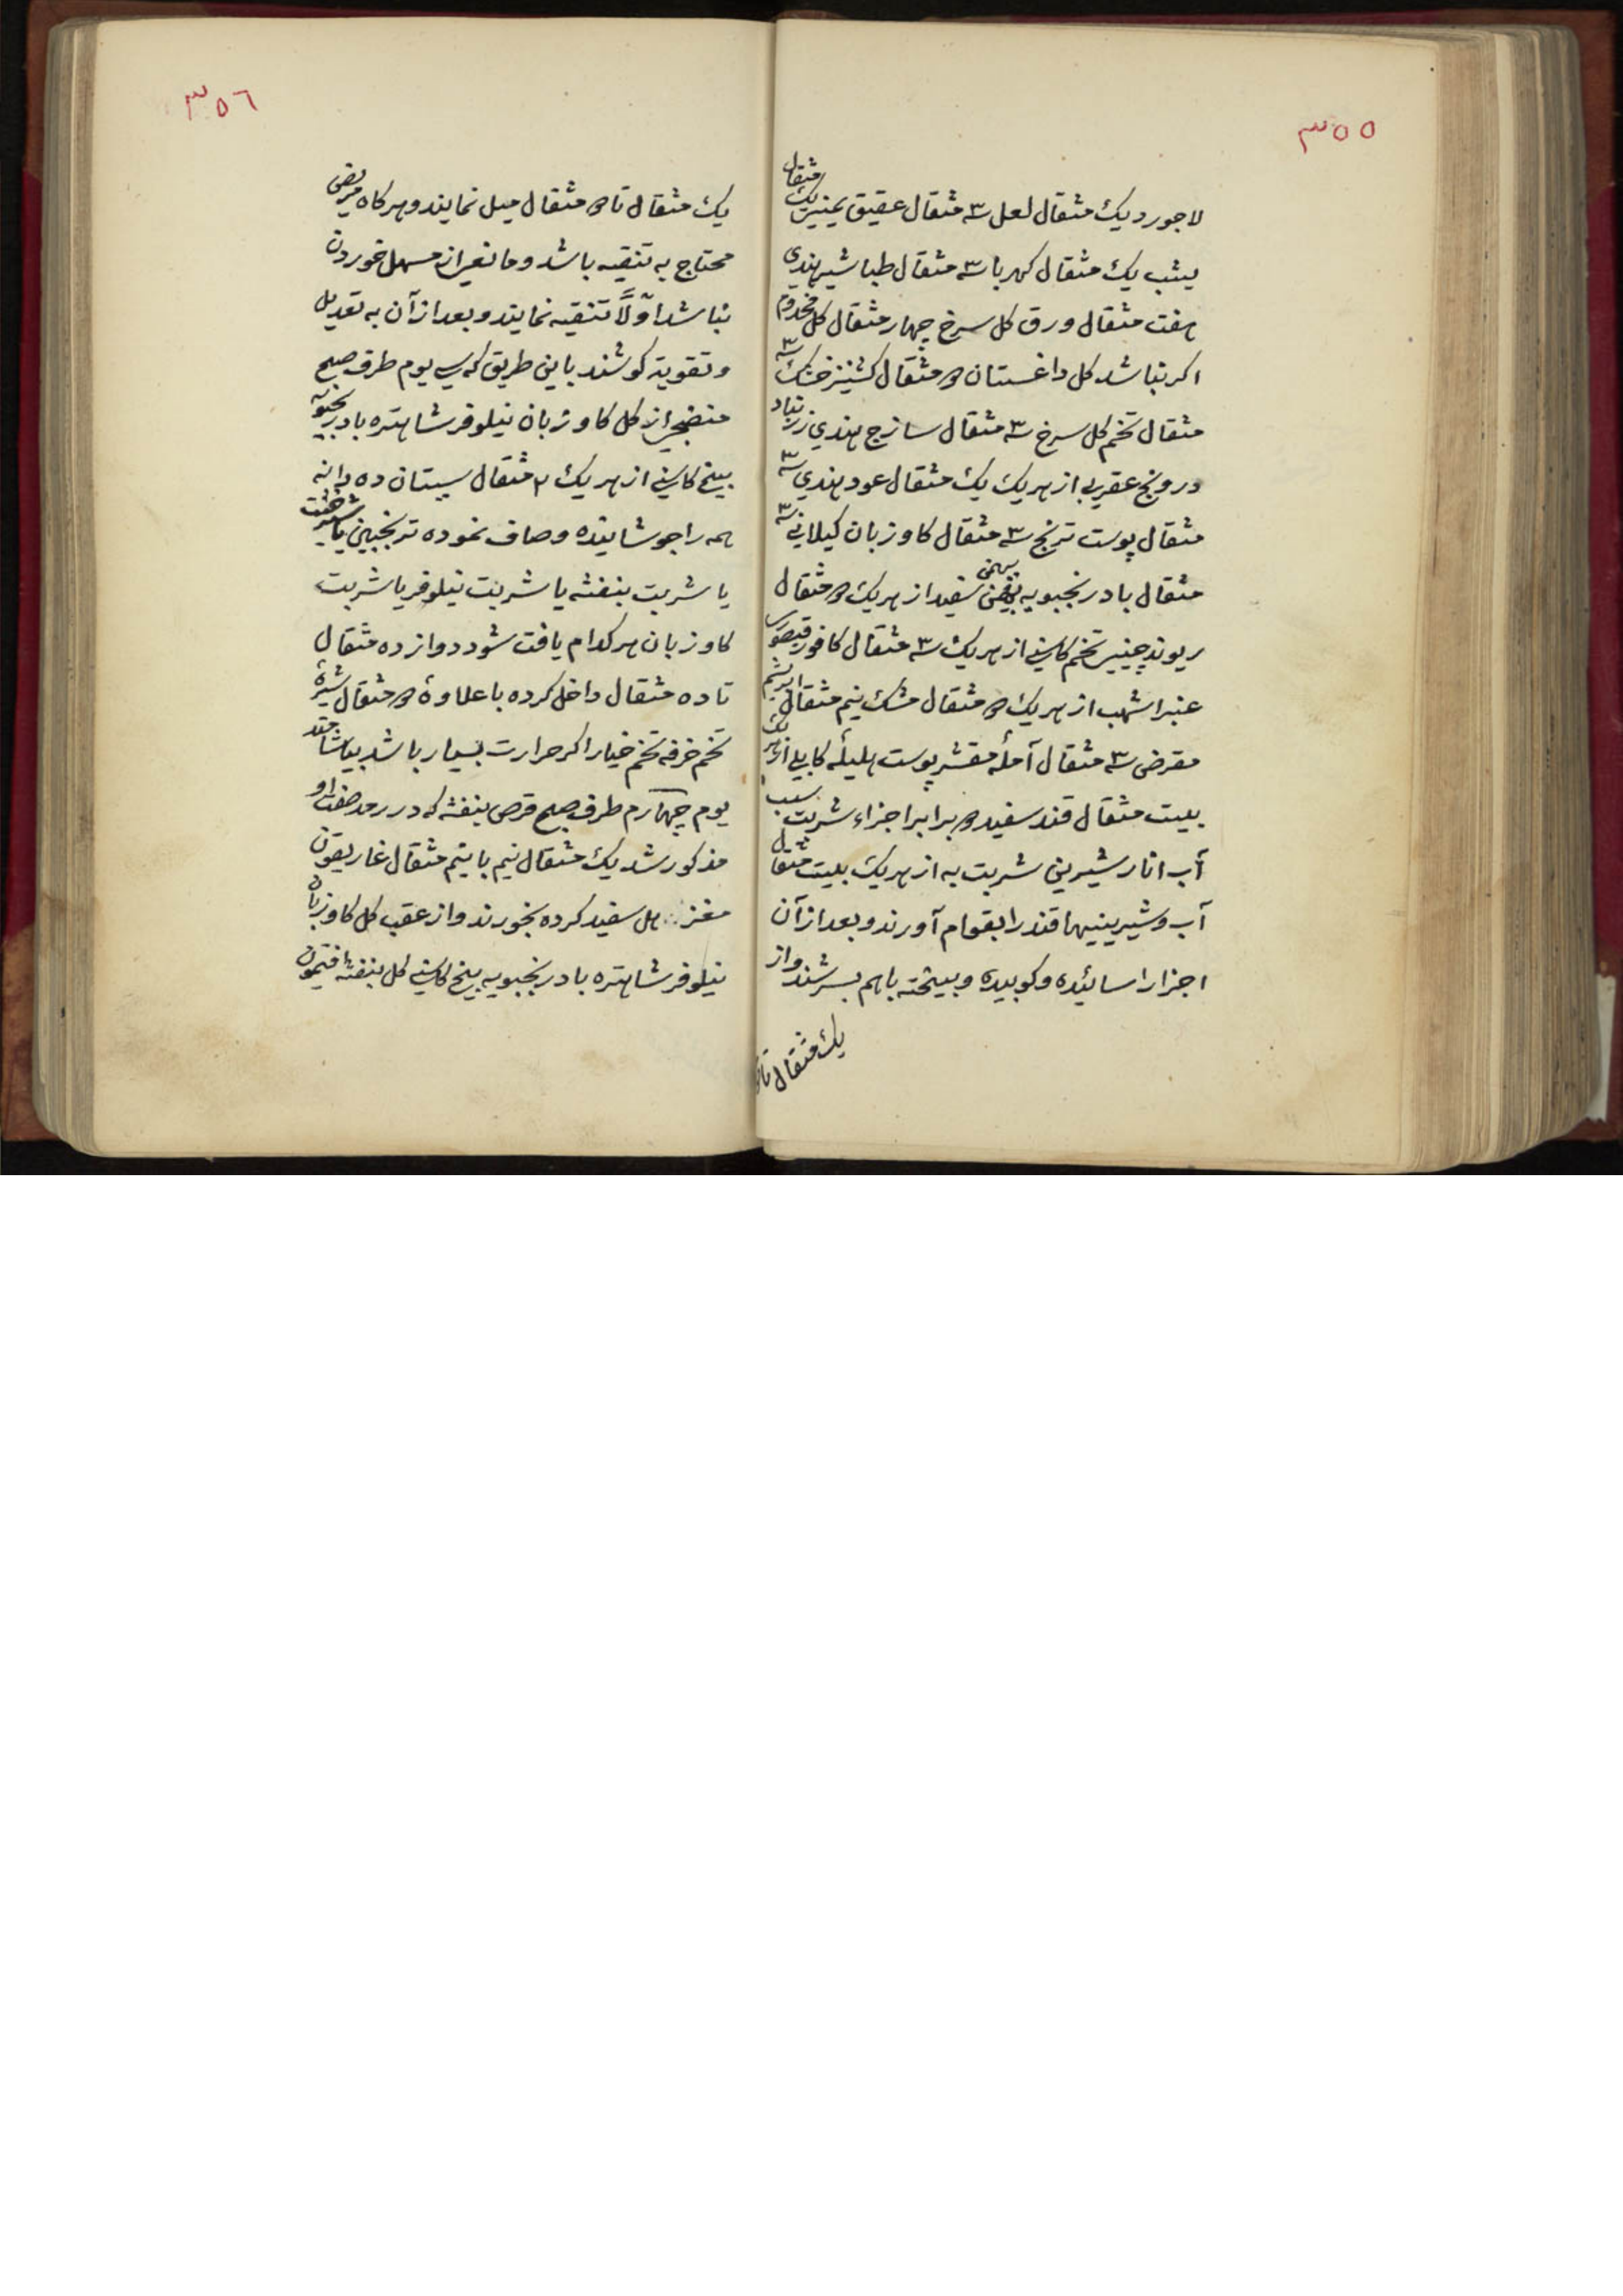 ٣٥٥
لاجورد یک مثقال لعل سه مثقال عقیق یمنی یک مثقال
یشب یک مثقال کهربا سه مثقال طباشیر هندی
هفت مثقال ورق کل سرخ چهار مثقال کل مخدوم
اکر نباشد کل داغستان دو مثقال کشنیز خشک سه
مثقال تخم کل سرخ سه مثقال ساذج هندی زرنباد
درونج عقربی از هریک یک مثقال عود هندی سه
مثقال پوست ترنج سه مثقال کاوزبان کیلانی سه
مثقال بادرنجبویه بهمن سفید از هریک دو مثقال
ریوند چینی تخم کاسنی از هریک سه مثقال کافور قیصوری
عنبر اشهب از هریک دو مثقال مشک نیم مثقال ابریشم
مقرض سه مثقال آملهٔ مقشر پوست هلیلهٔ کابلی از هریک
بیست مثقال قند سفید دو برابر اجزاء شربت سیب
آب انار شیرین شربت به از هریک بیست مثقال
آب و شیرینیها قند را بقوام آورند و بعد از آن
اجزا را سائیده و کوبیده و بیخته باهم بسرشند و از
یک مثقال تا دو
٣٥٦
یک مثقال تا دو مثقال میل نمایند و هرکاه مریض
محتاج به تنقیه باشد و مانعی از مسهل خوردن
نباشد اوّلاً تنقیه نمایند و بعد از آن به تعدیل
و تقویة کوشند باین طریق که سی یوم طرف صبح
منضجی از کل کاوزبان نیلوفر شاهتره بادرنجبویه
بیخ کاسنی از هریک ٢ مثقال سپستان ده دانه
همه را جوشانیده و صاف نموده ترنجبین یا شیرخشت
یا شربت بنفشه یا شربت نیلوفر یا شربت
کاوزبان هرکدام یافت شود دوازده مثقال
تا ده مثقال داخل کرده با علاوهٔ دو مثقال شیرهٔ
تخم خرفه تخم خیار اکر حرارت بسیار باشد بیاشامند
یوم چهارم طرف صبح قرص بنفشه که در رمد صفت او
مذکور شد یک مثقال نیم با نیم مثقال غاریقون
مغز هل سفید کرده بخورند و از عقب کل کاوزبان
نیلوفر شاهتره بادرنجبویه بیخ کاسنی کل بنفشه افتیمون